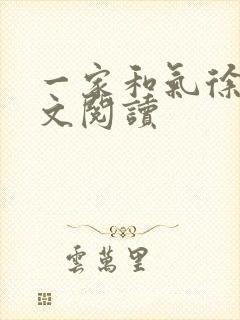 一家和氣徐
文閱讀
雲萬里